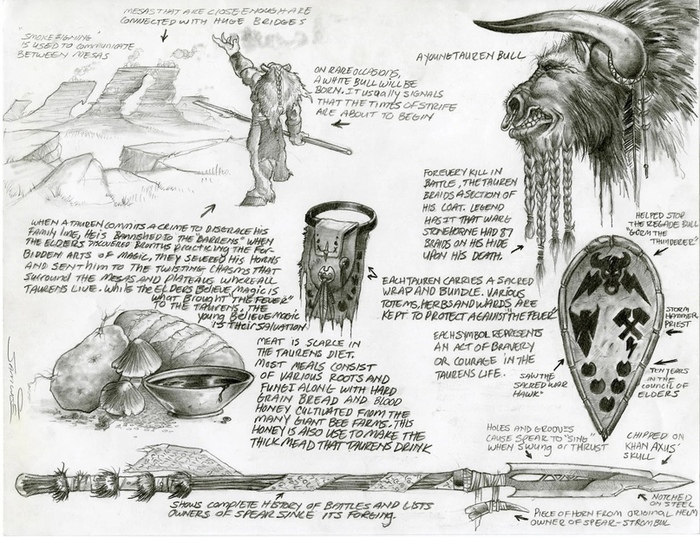 MESAS THAT ARE CLOSE ENOUGH ARE
CONNECTED WITH HUGE BRIDGES
"SMOKE SIGNING"
IS USED TO COMMUNICATE
BETWEEN MESAS
A YOUNG TAUREN BULL
ON RARE OCCASIONS,
A WHITE BULL WILL BE
BORN. IT USUALLY SIGNALS
THAT THE TIMES OF STRIFE
ARE ABOUT TO BEGIN
FOR EVERY KILL IN
BATTLE, THE TAUREN
BRAIDS A SECTION OF
HIS COAT. LEGEND
HAS IT THAT WARG
STONEHORNE HAD 87
BRAIDS ON HIS HIDE
UPON HIS DEATH.
WHEN A TAUREN COMMITS A CRIME TO DISGRACE HIS
FAMILY LINE, HE IS BANNISHED TO THE BARRENS" WHEN
THE ELDERS DISCOVERED BRONTHIS PRACTICING THE FOR-
BIDDEN ARTS OF MAGIC, THEY SEVERED HIS HORNS
AND SENT HIM TO THE TWISTING CHASMS THAT
SURROUND THE MESAS AND PLATEAUS WHERE ALL
TAURENS LIVE. WHILE THE ELDERS BELIEVE MAGIC IS
WHAT BROUGHT THE "FEVER"
TO THE TAURENS, THE
YOUNG BELIEVE MAGIC
IS THEIR SALVATION
HELPED STOP
THE REGADE BULL
"GORM THE
THUNDERER"
EACH TAUREN CARRIES A SACRED
WRAP AND BUNDLE. VARIOUS
TOTEMS, HERBS AND WARDS ARE
KEPT TO PROTECT AGAINST "THE FEVER"
EACH SYMBOL REPRESENTS
AN ACT OF BRAVERY
OR COURAGE IN THE
TAURENS LIFE.
STORM
HAMMER
PRIEST
SAW THE
SACRED WAR
HAWK
TEN YEARS
IN THE
COUNCIL OF
ELDERS
MEAT IS SCARCE IN
THE TAURENS DIET.
MOST MEALS CONSIST
OF VARIOUS ROOTS AND
FUNGI ALONG WITH HARD
GRAIN BREAD AND BLOOD
HONEY CULTIVATED FROM THE
MANY GIANT BEE FARMS. THIS
HONEY IS ALSO USE TO MAKE THE
THICK MEAD THAT TAURENS DRINK
HOLES AND GROOVES
CAUSE SPEAR TO "SING"
WHEN SWUNG OR THRUST
CHIPPED ON
KHAN AXUS'
SKULL
SHOWS COMPLETE HISTORY OF BATTLES AND LISTS
OWNERS OF SPEAR SINCE ITS FORGING.
NOTCHED
ON STEEL
HELM
PIECE OF HORN FROM ORIGINAL
OWNER OF SPEAR - STROMBUL